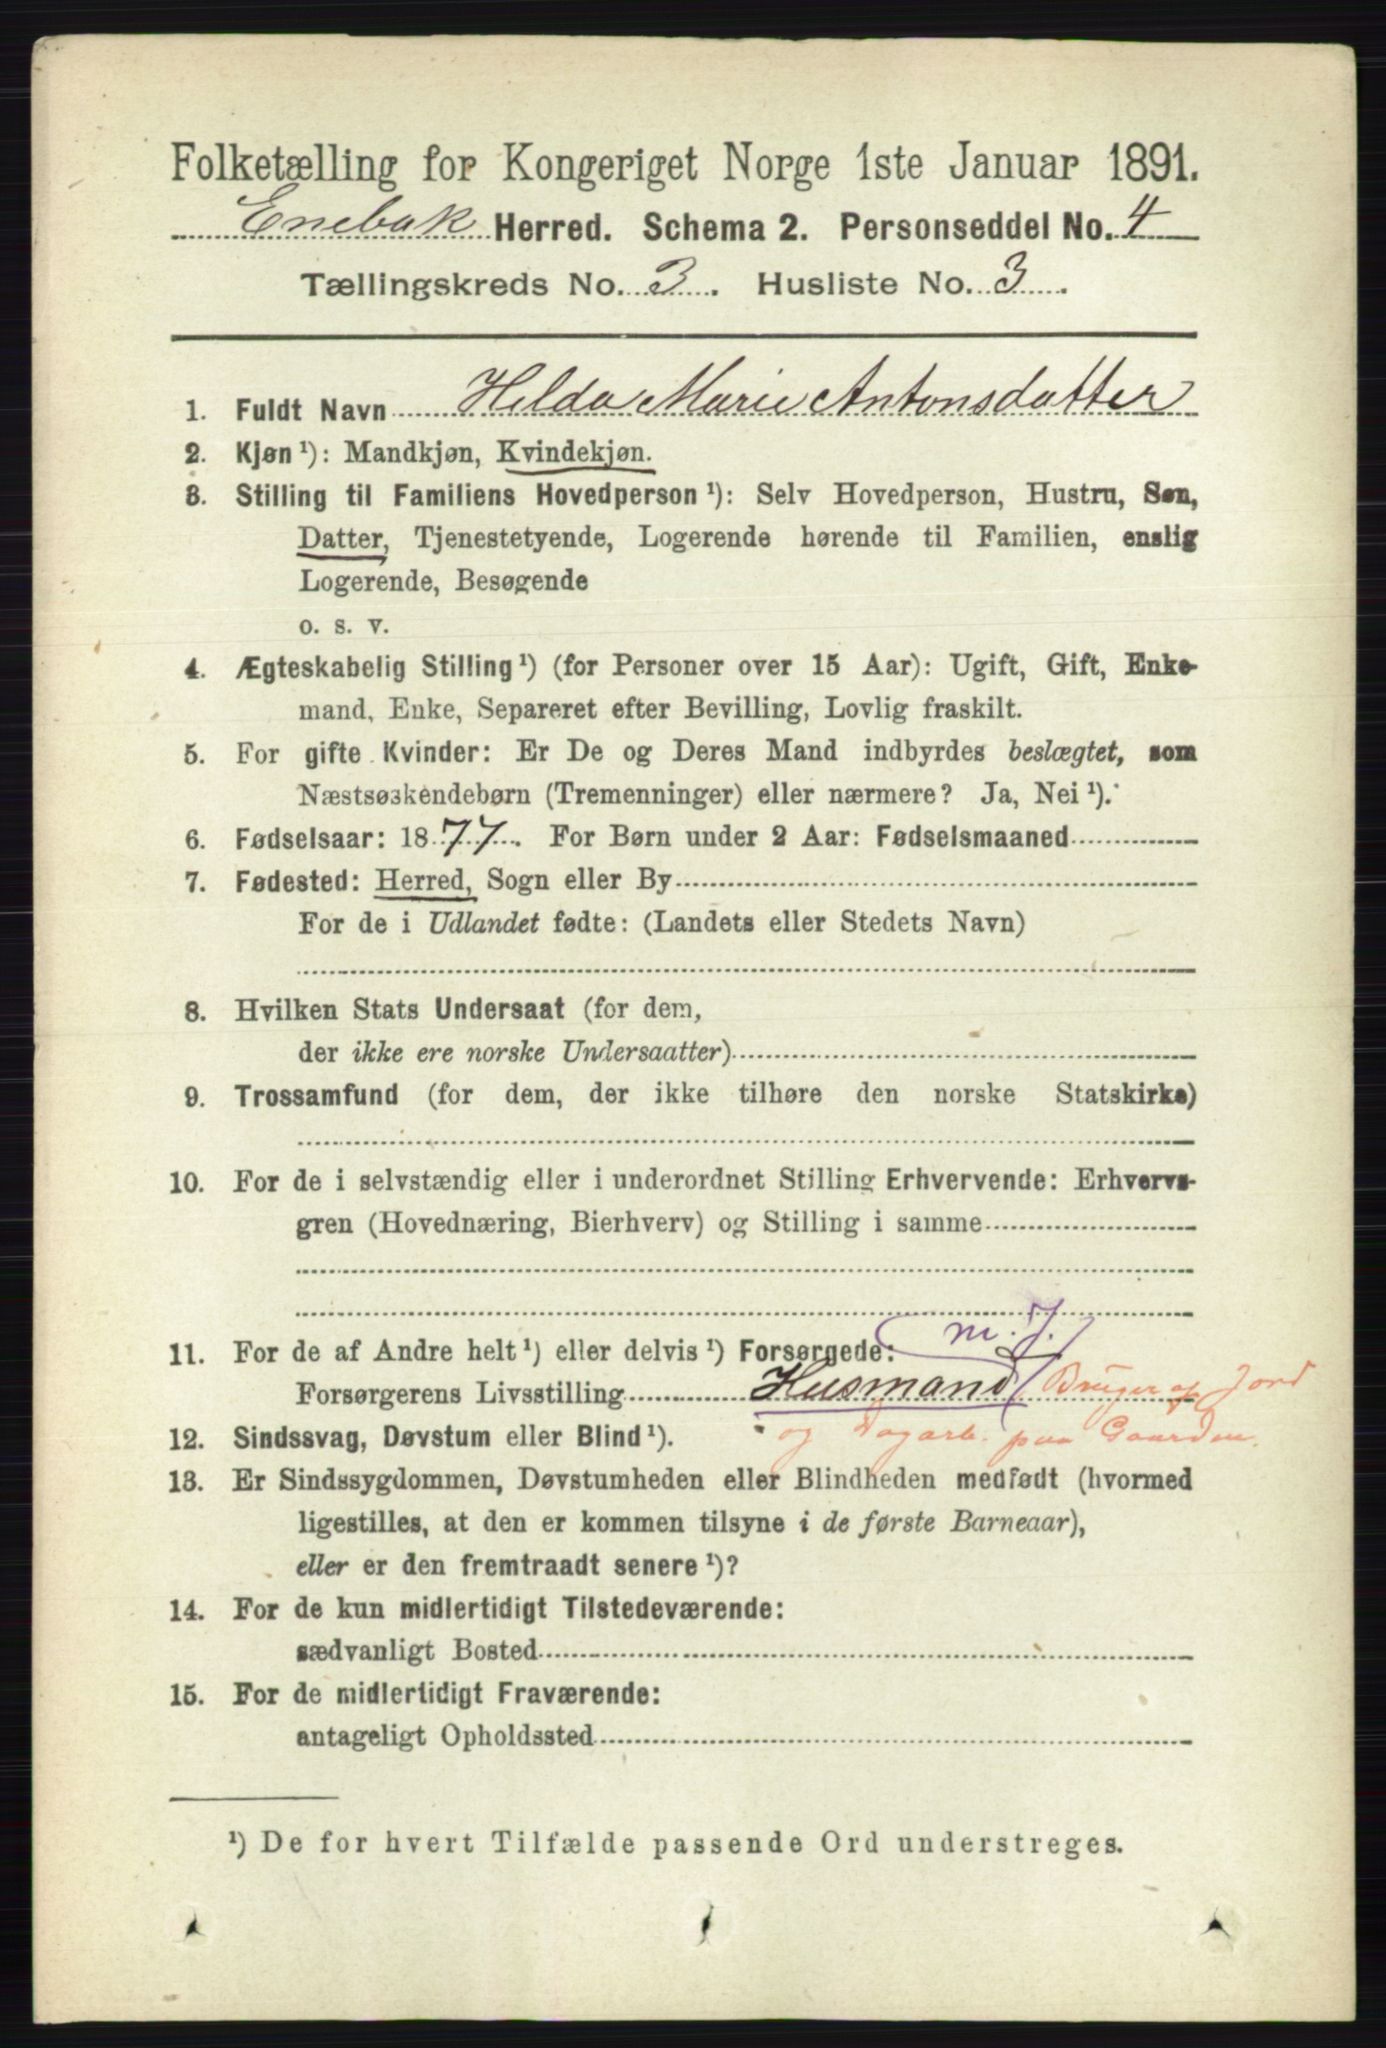 Folketælling for Kongeriget Norge 1ste Januar 1891.
Enebak Herred. Schema 2. Personseddel No. 4
Tællingskreds No. 3. Husliste No. 3.
1. Fuldt Navn Helda Marie Antonsdatter
2. Kjøn ¹): Mandkjøn, Kvindekjøn.
3. Stilling til Familiens Hovedperson ¹): Selv Hovedperson, Hustru, Søn,
Datter, Tjenestetyende, Logerende hørende til Familien, enslig
Logerende, Besøgende
o. s. v.
4. Ægteskabelig Stilling ¹) (for Personer over 15 Aar): Ugift, Gift, Enke-
mand, Enke, Separeret efter Bevilling, Lovlig fraskilt.
5. For gifte Kvinder: Er De og Deres Mand indbyrdes beslægtet, som
Næstsøskendebørn (Tremenninger) eller nærmere? Ja, Nei ¹).
6. Fødselsaar: 1877. For Børn under 2 Aar: Fødselsmaaned
7. Fødested: Herred, Sogn eller By
For de i Udlandet fødte: (Landets eller Stedets Navn)
8. Hvilken Stats Undersaat (for dem,
der ikke ere norske Undersaatter)
9. Trossamfund (for dem, der ikke tilhøre den norske Statskirke)
10. For de i selvstændig eller i underordnet Stilling Erhvervende: Erhvervs-
gren (Hovednæring, Bierhverv) og Stilling i samme
m. J.
11. For de af Andre helt ¹) eller delvis ¹) Forsørgede:
Forsørgerens Livsstilling Husmand Bruger af Jord
og Dagarb. paa Gaarden.
12. Sindssvag, Døvstum eller Blind ¹).
13. Er Sindssygdommen, Døvstumheden eller Blindheden medfødt (hvormed
ligestilles, at den er kommen tilsyne i de første Barneaar),
eller er den fremtraadt senere ¹)?
14. For de kun midlertidigt Tilstedeværende:
sædvanligt Bosted
15. For de midlertidigt Fraværende:
antageligt Opholdssted
¹) De for hvert Tilfælde passende Ord understreges.